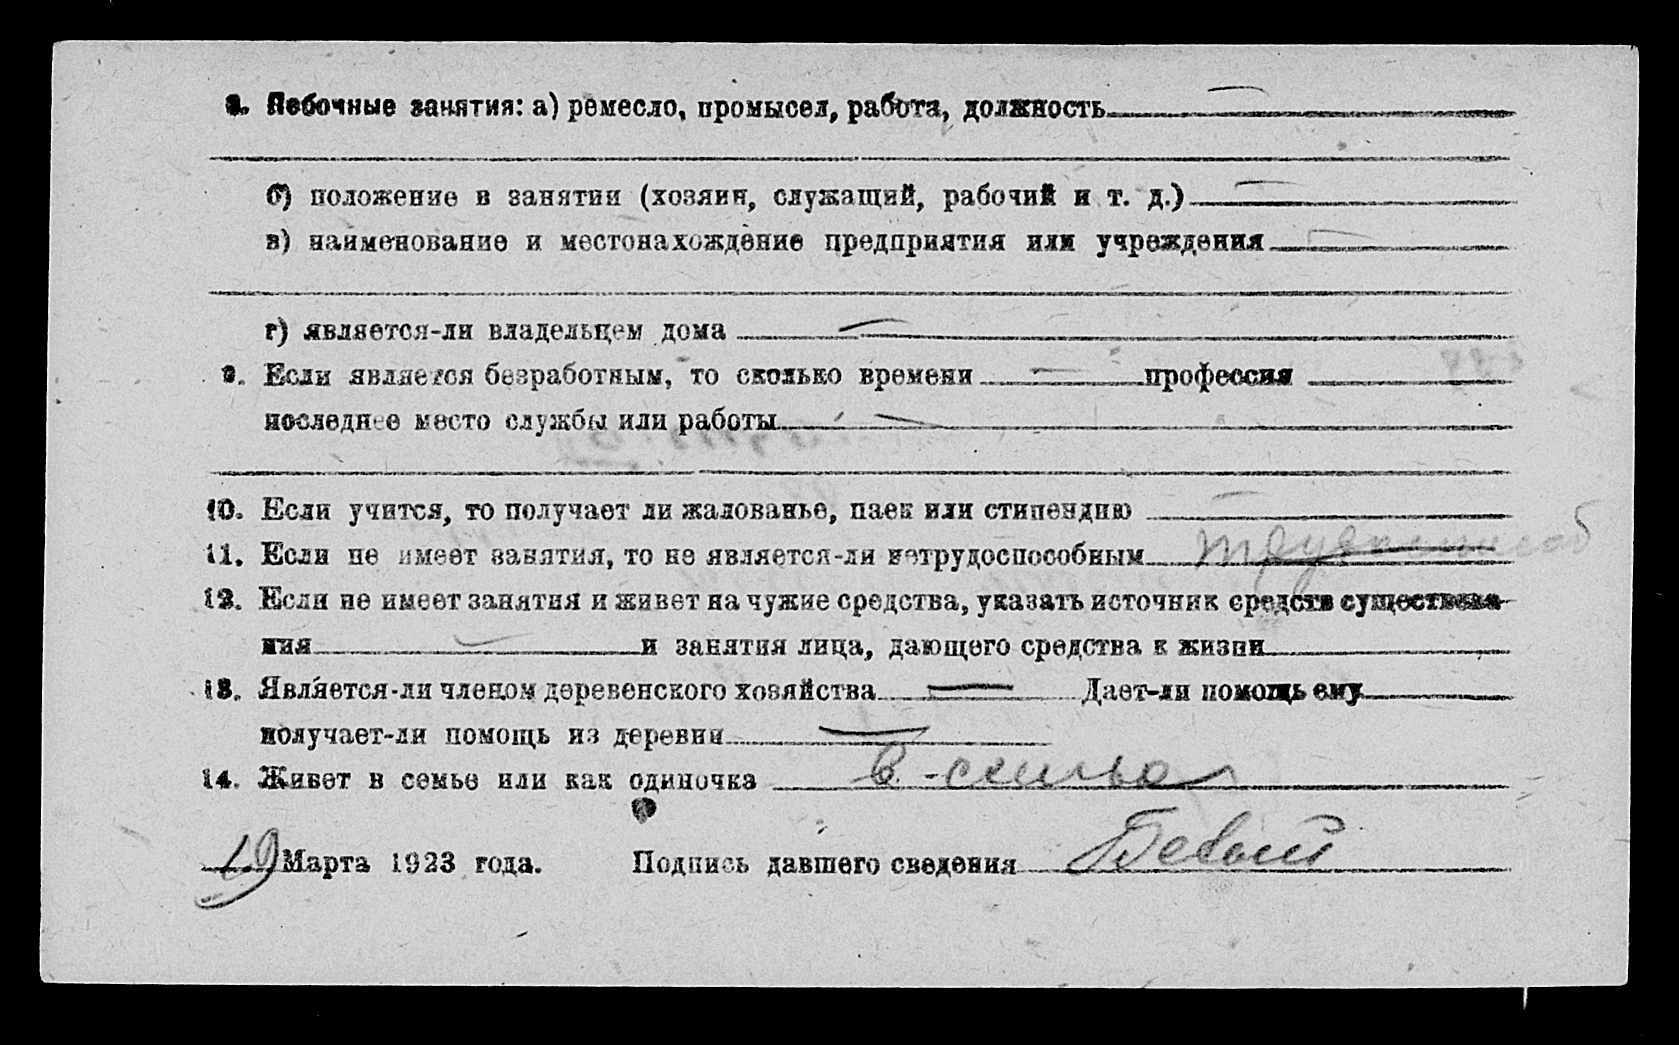 8. Побочные занятия: а) ремесло, промысел, работа, должность —
б) положение в занятии (хозяин, служащий, рабочий и т. д.) —
в) наименование и местонахождение предприятия или учреждения —
г) является-ли владельцем дома —
9. Если является безработным, то сколько времени — профессия
последнее место службы или работы —
10. Если учится, то получает ли жалованье, паек или стипендию —
11. Если не имеет занятия, то не является-ли нетрудоспособным трудоспособ
12. Если не имеет занятия и живет на чужие средства, указать источник средств существова-
ния — и занятия лица, дающего средства к жизни
13. Является-ли членом деревенского хозяйства — Дает-ли помощь ему
получает-ли помощь из деревни —
14. Живет в семье или как одиночка в - семье
19 Марта 1923 года. Подпись давшего сведения